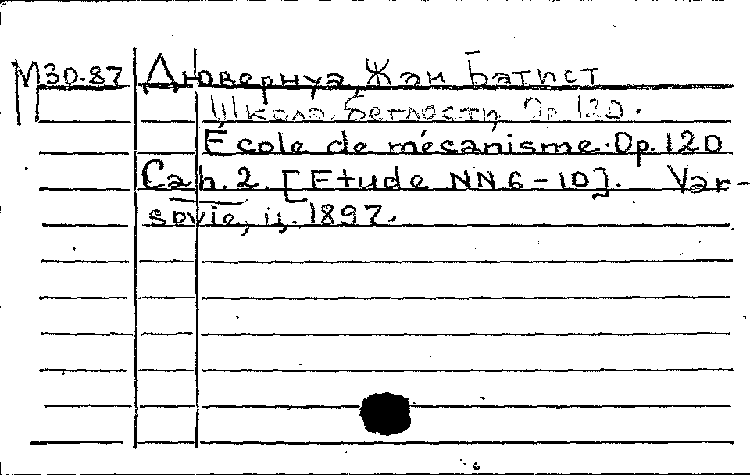 М30-87 Дювернуа, Жан Батист
Школа беглости, Op. 120.
École de mécanisme. Op. 120
Cah. 2. [Etude NN 6-10]. Var-
sovie, ц. 1897.